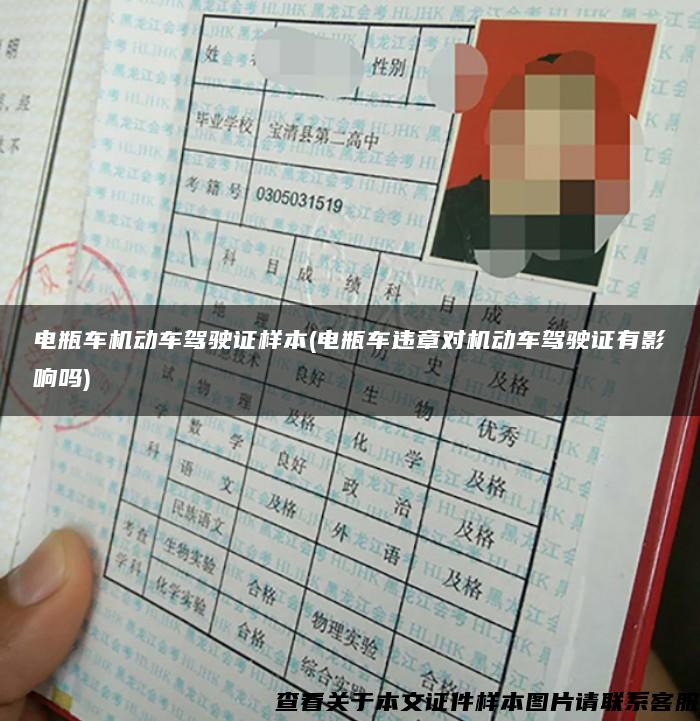 明
经
不
姓
性别
毕业学校 宝清县第二高中
考籍号 0305031519
科目 成绩 科目 成绩
地理 历史 及格
电瓶车机动车驾驶证样本(电瓶车违章对机动车驾驶证有影
响吗)
信息技术 良好 生物 优秀
物理 及格 化学 及格
数学 良好 政治 及格
语文 及格 外语 及格
民族语文
考试学科
考查学科
生物实验 合格 物理实验 合格
化学实验 合格 综合实践
黑龙江会考 HLJHK
查看关于本文证件样本图片请联系客服